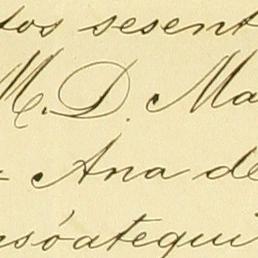 tos sesent
M. D. Ma
- Ana de
nsóategui